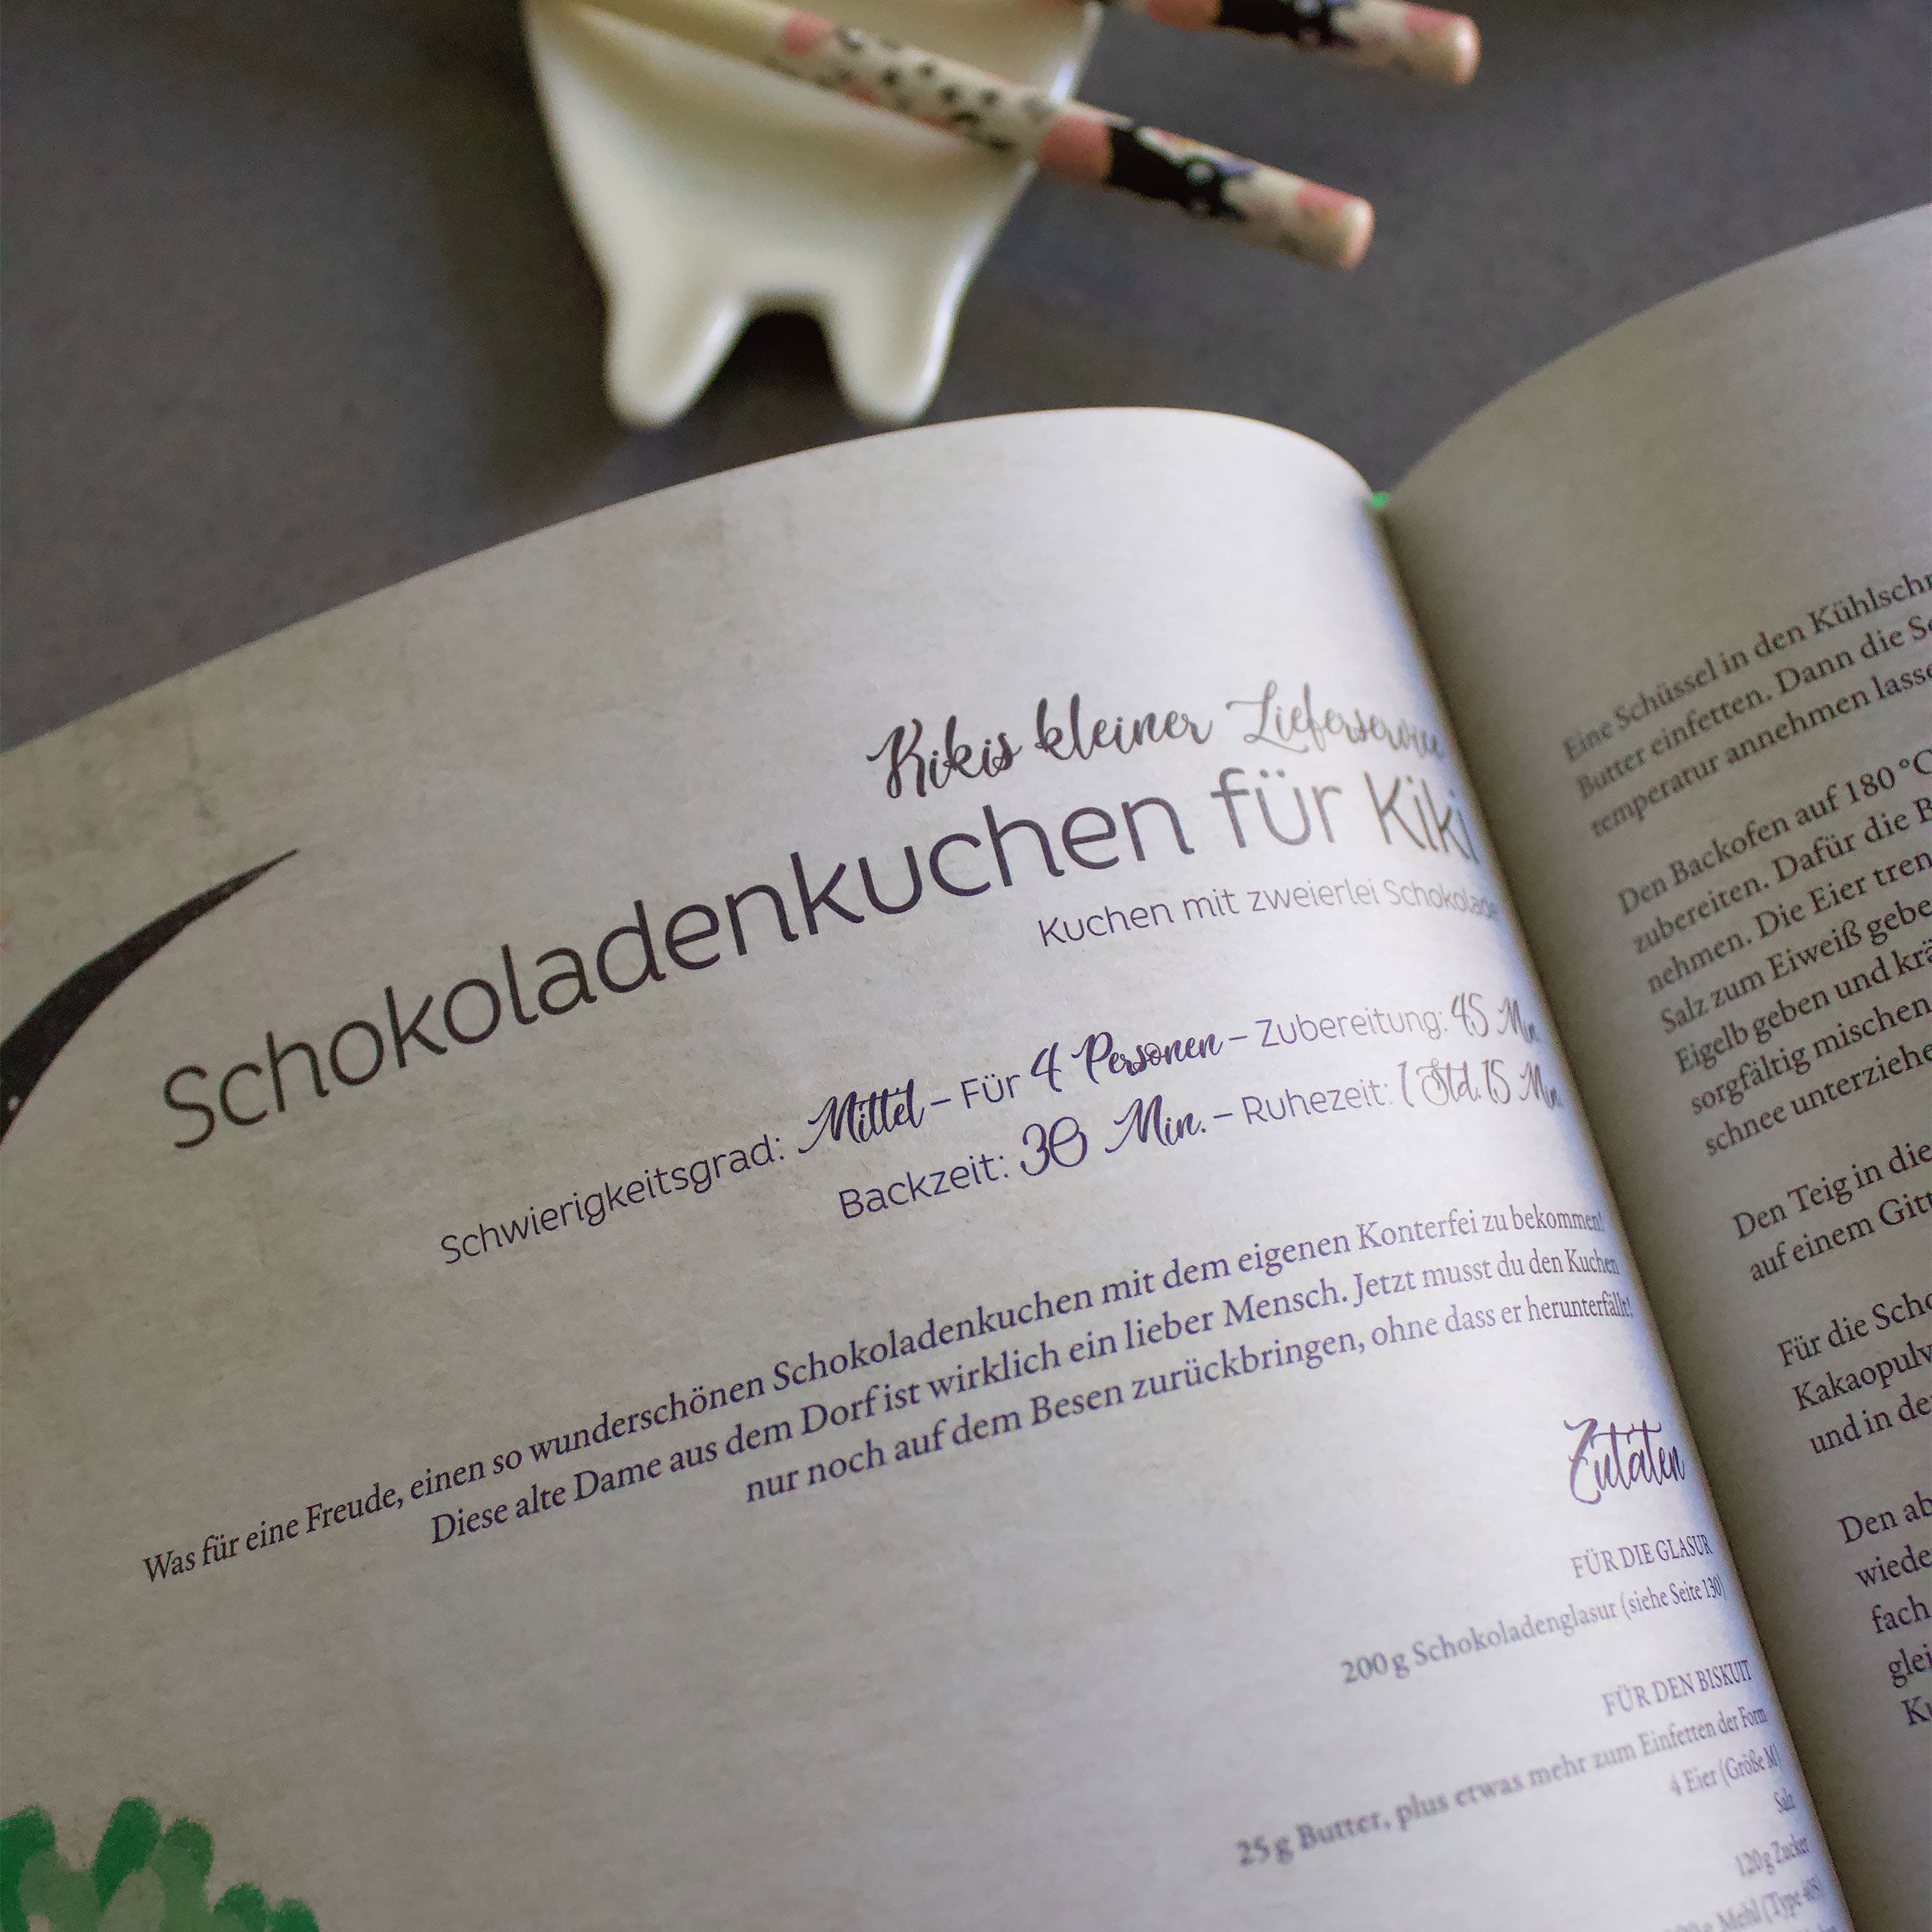 Kikis kleiner Lieferservice
Schokoladenkuchen für Kiki
Kuchen mit zweierlei Schokolade
Schwierigkeitsgrad: Mittel – Für 4 Personen – Zubereitung: 45 Min.
Backzeit: 30 Min. – Ruhezeit: 1 Std. 15 Min.
Was für eine Freude, einen so wunderschönen Schokoladenkuchen mit dem eigenen Konterfei zu bekommen!
Diese alte Dame aus dem Dorf ist wirklich ein lieber Mensch. Jetzt musst du den Kuchen
nur noch auf dem Besen zurückbringen, ohne dass er herunterfällt!
Zutaten
FÜR DIE GLASUR
200 g Schokoladenglasur (siehe Seite 130)
FÜR DEN BISKUIT
25 g Butter, plus etwas mehr zum Einfetten der Form
4 Eier (Größe M)
Salz
120 g Zucker
Mehl (Type 405)
Eine Schüssel in den
Butter einfetten. Dann die
temperatur annehmen
Den Backofen auf 180 °C
zubereiten. Dafür die
nehmen. Die Eier
Salz zum Eiweiß
Eigelb geben und
sorgfältig mischen
schnee
Den Teig in die
auf einem
Für die
und in
Den